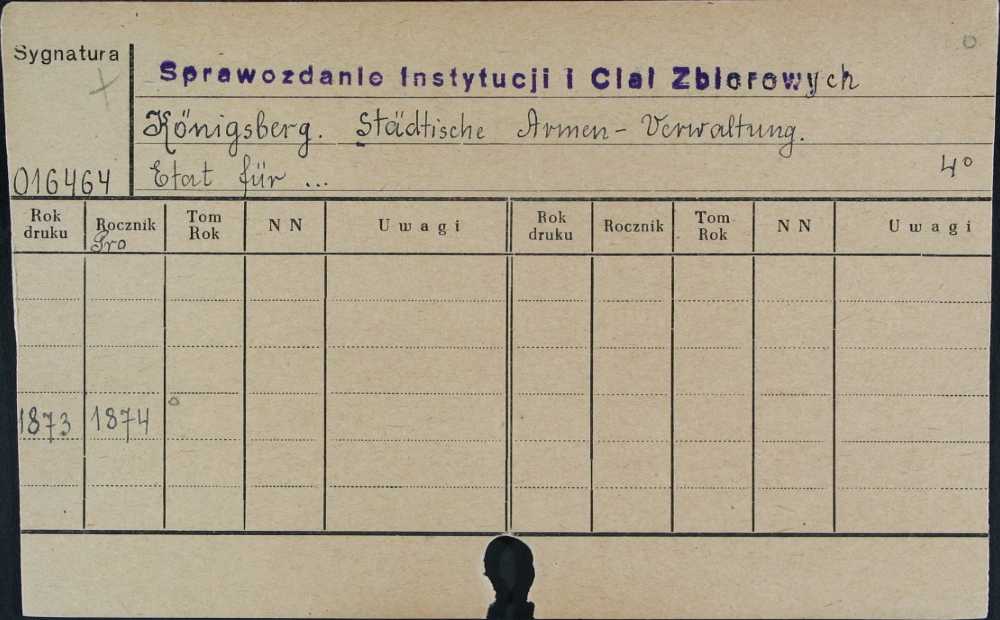 Sygnatura
Sprawozdanie Instytucji i Ciał Zbiorowych
Königsberg. Städtische Armen-Verwaltung.
016464
Etat für ...
4°
Rok druku Rocznik Tom Rok N N Uwagi Rok druku Rocznik Tom Rok N N Uwagi
Pro
1873 1874